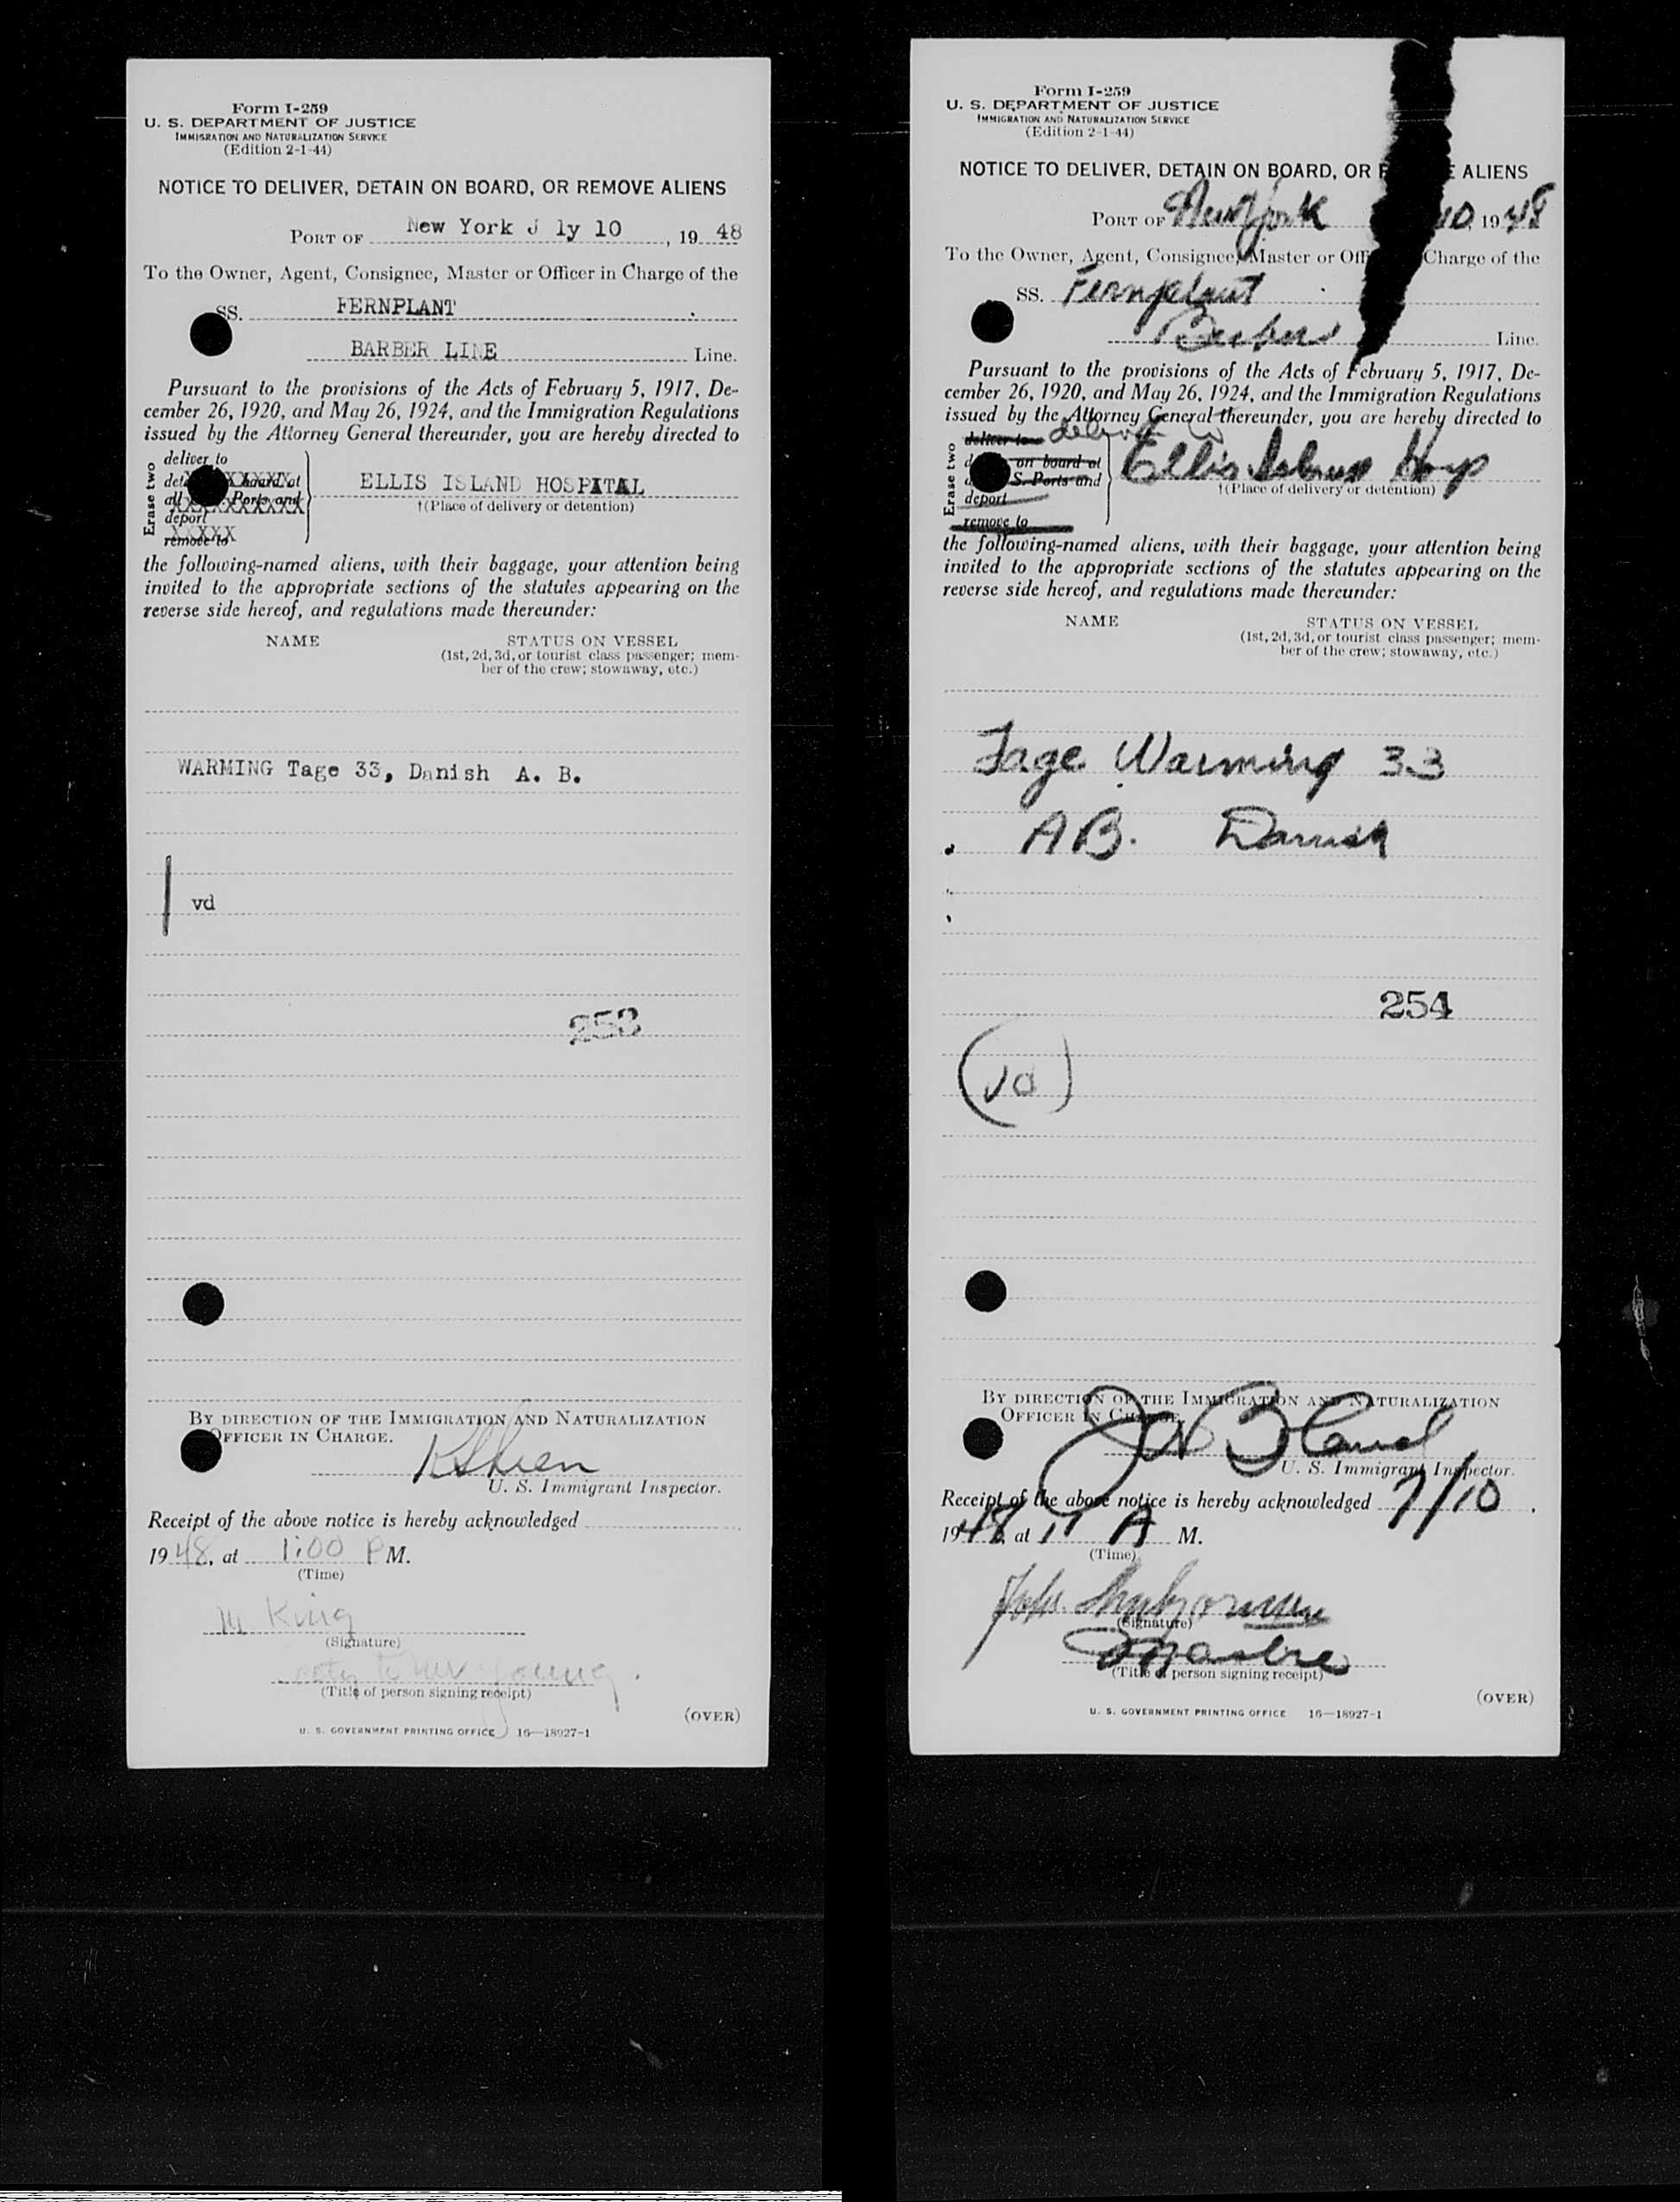 Form I-259
U. S. DEPARTMENT OF JUSTICE
IMMIGRATION AND NATURALIZATION SERVICE
(Edition 2-1-44)
NOTICE TO DELIVER, DETAIN ON BOARD, OR REMOVE ALIENS
PORT OF New York J ly 10, 19 48
To the Owner, Agent, Consignee, Master or Officer in Charge of the
SS. FERNPLANT
BARBER LINE Line.
Pursuant to the provisions of the Acts of February 5, 1917, De-
cember 26, 1920, and May 26, 1924, and the Immigration Regulations
issued by the Attorney General thereunder, you are hereby directed to
Erase two
deliver to
board at
all Ports and
deport
remove to
ELLIS ISLAND HOSPITAL
†(Place of delivery or detention)
the following-named aliens, with their baggage, your attention being
invited to the appropriate sections of the statutes appearing on the
reverse side hereof, and regulations made thereunder:
NAME STATUS ON VESSEL
(1st, 2d, 3d, or tourist class passenger; mem-
ber of the crew; stowaway, etc.)
WARMING Tage 33, Danish A. B.
vd
253
BY DIRECTION OF THE IMMIGRATION AND NATURALIZATION
OFFICER IN CHARGE.
U. S. Immigrant Inspector.
Receipt of the above notice is hereby acknowledged
19 48, at 1:00 P M.
(Time)
M King
(Signature)
young
(Title of person signing receipt)
(OVER)
U. S. GOVERNMENT PRINTING OFFICE 16—18927-1
Form I-259
U. S. DEPARTMENT OF JUSTICE
IMMIGRATION AND NATURALIZATION SERVICE
(Edition 2-1-44)
NOTICE TO DELIVER, DETAIN ON BOARD, OR E ALIENS
PORT OF New York 10, 19 48
To the Owner, Agent, Consignee, Master or Off Charge of the
SS. Fernplant
Barber Line.
Pursuant to the provisions of the Acts of February 5, 1917, De-
cember 26, 1920, and May 26, 1924, and the Immigration Regulations
issued by the Attorney General thereunder, you are hereby directed to
Erase two
deliver to deliver to
on board at
S. Ports and
deport
remove to
Ellis Island Hosp
†(Place of delivery or detention)
the following-named aliens, with their baggage, your attention being
invited to the appropriate sections of the statutes appearing on the
reverse side hereof, and regulations made thereunder:
NAME STATUS ON VESSEL
(1st, 2d, 3d, or tourist class passenger; mem-
ber of the crew; stowaway, etc.)
Tage Warming 33
AB. Danish
254
(vd)
BY DIRECTION OF THE IMMIGRATION AND NATURALIZATION
OFFICER IN CHARGE.
U. S. Immigrant Inspector.
Receipt of the above notice is hereby acknowledged 7/10,
19 48, at 11 A M.
(Time)
(Signature)
(Title of person signing receipt)
(OVER)
U. S. GOVERNMENT PRINTING OFFICE 16—18927-1